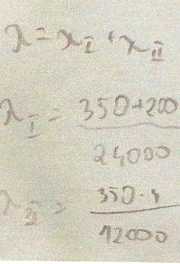 λ = x_I + x_II
x_I = 350+200
24000
x_II = 350·4
12000